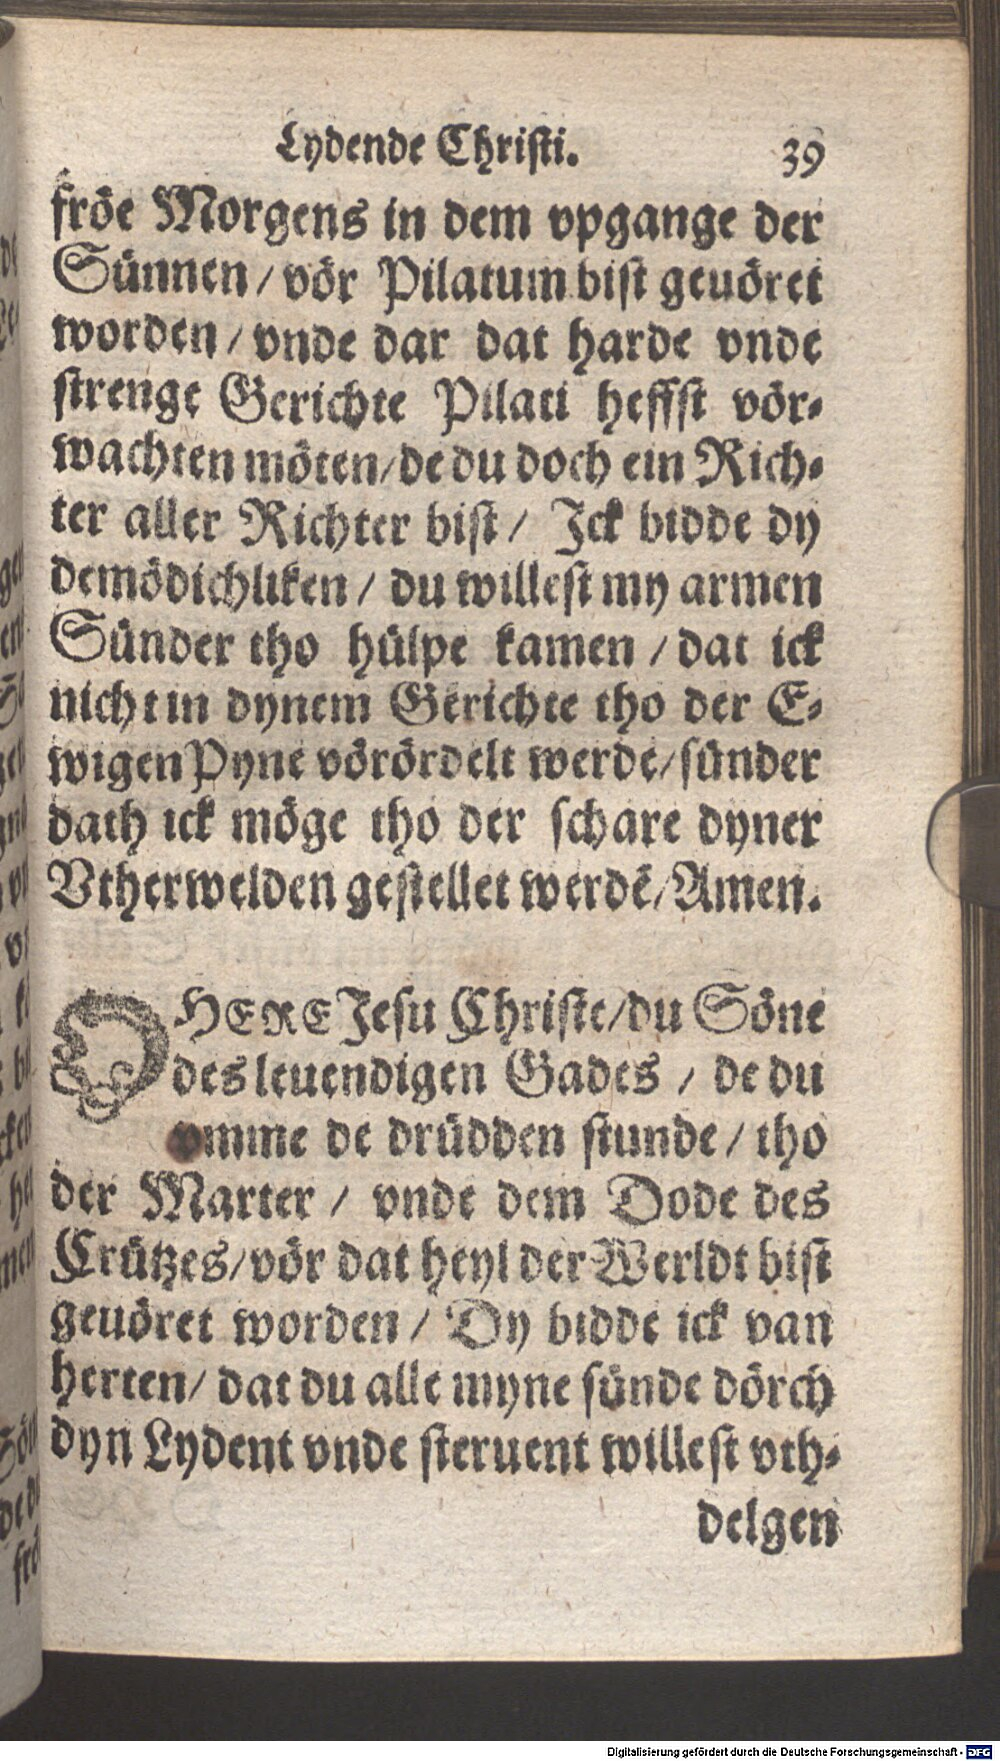 Lydende Christi. 39
fröe Morgens in dem vpgange der
Sünnen / vör Pilatum bist geuöret
worden / vnde dar dat harde vnde
strenge Gerichte Pilati heffst vör-
wachten möten / de du doch ein Rich-
ter aller Richter bist / Ick bidde dy
demödichliken / du willest my armen
Sünder tho hülpe kamen / dat ick
nicht in dynem Gerichte tho der E-
wigen Pyne vörördelt werde / sünder
dath ick möge tho der schare dyner
Vtherwelden gestellet werdē / Amen.
O HERE Jesu Christe / du Söne
des leuendigen Gades / de du
vmme de drüdden stunde / tho
der Marter / vnde dem Dode des
Crützes / vör dat heyl der Werldt bist
geuöret worden / Dy bidde ick van
herten / dat du alle myne sünde dörch
dyn Lydent vnde steruent willest vth-
delgen
Digitalisierung gefördert durch die Deutsche Forschungsgemeinschaft - DFG